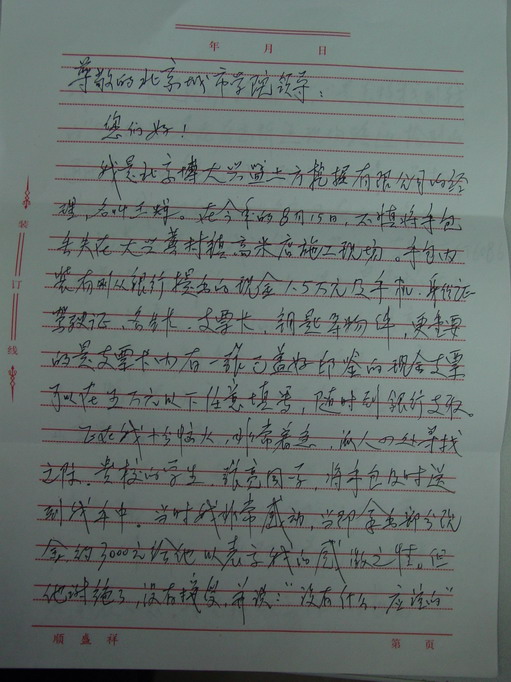 年 月 日
尊敬的北京城市学院领导:
您们好!
我是北京博大兴盛土方挖掘有限公司的经
理,名叫王辉。在今年的8月15日,不慎将手包
丢失在大兴黄村镇高米店施工现场。手包内
装有刚从银行提出的现金1.5万元及手机、身份证
驾驶证、名片卡、支票卡、钥匙等物件,更重要
的是支票卡内有一张已盖好印鉴的现金支票
可以在五万元以下任意填写,随时到银行支取。
正在我十分恼火,非常着急,派人四处寻找
之际。贵校的学生,张亮同学,将手包及时送
到我手中。当时我非常感动,当即拿出部分现
金约3000元给他以表示我的感激之情。但
他谢绝了,没有接受,并说:"没有什么,应该的"
装
订
线
顺盛祥
第 页